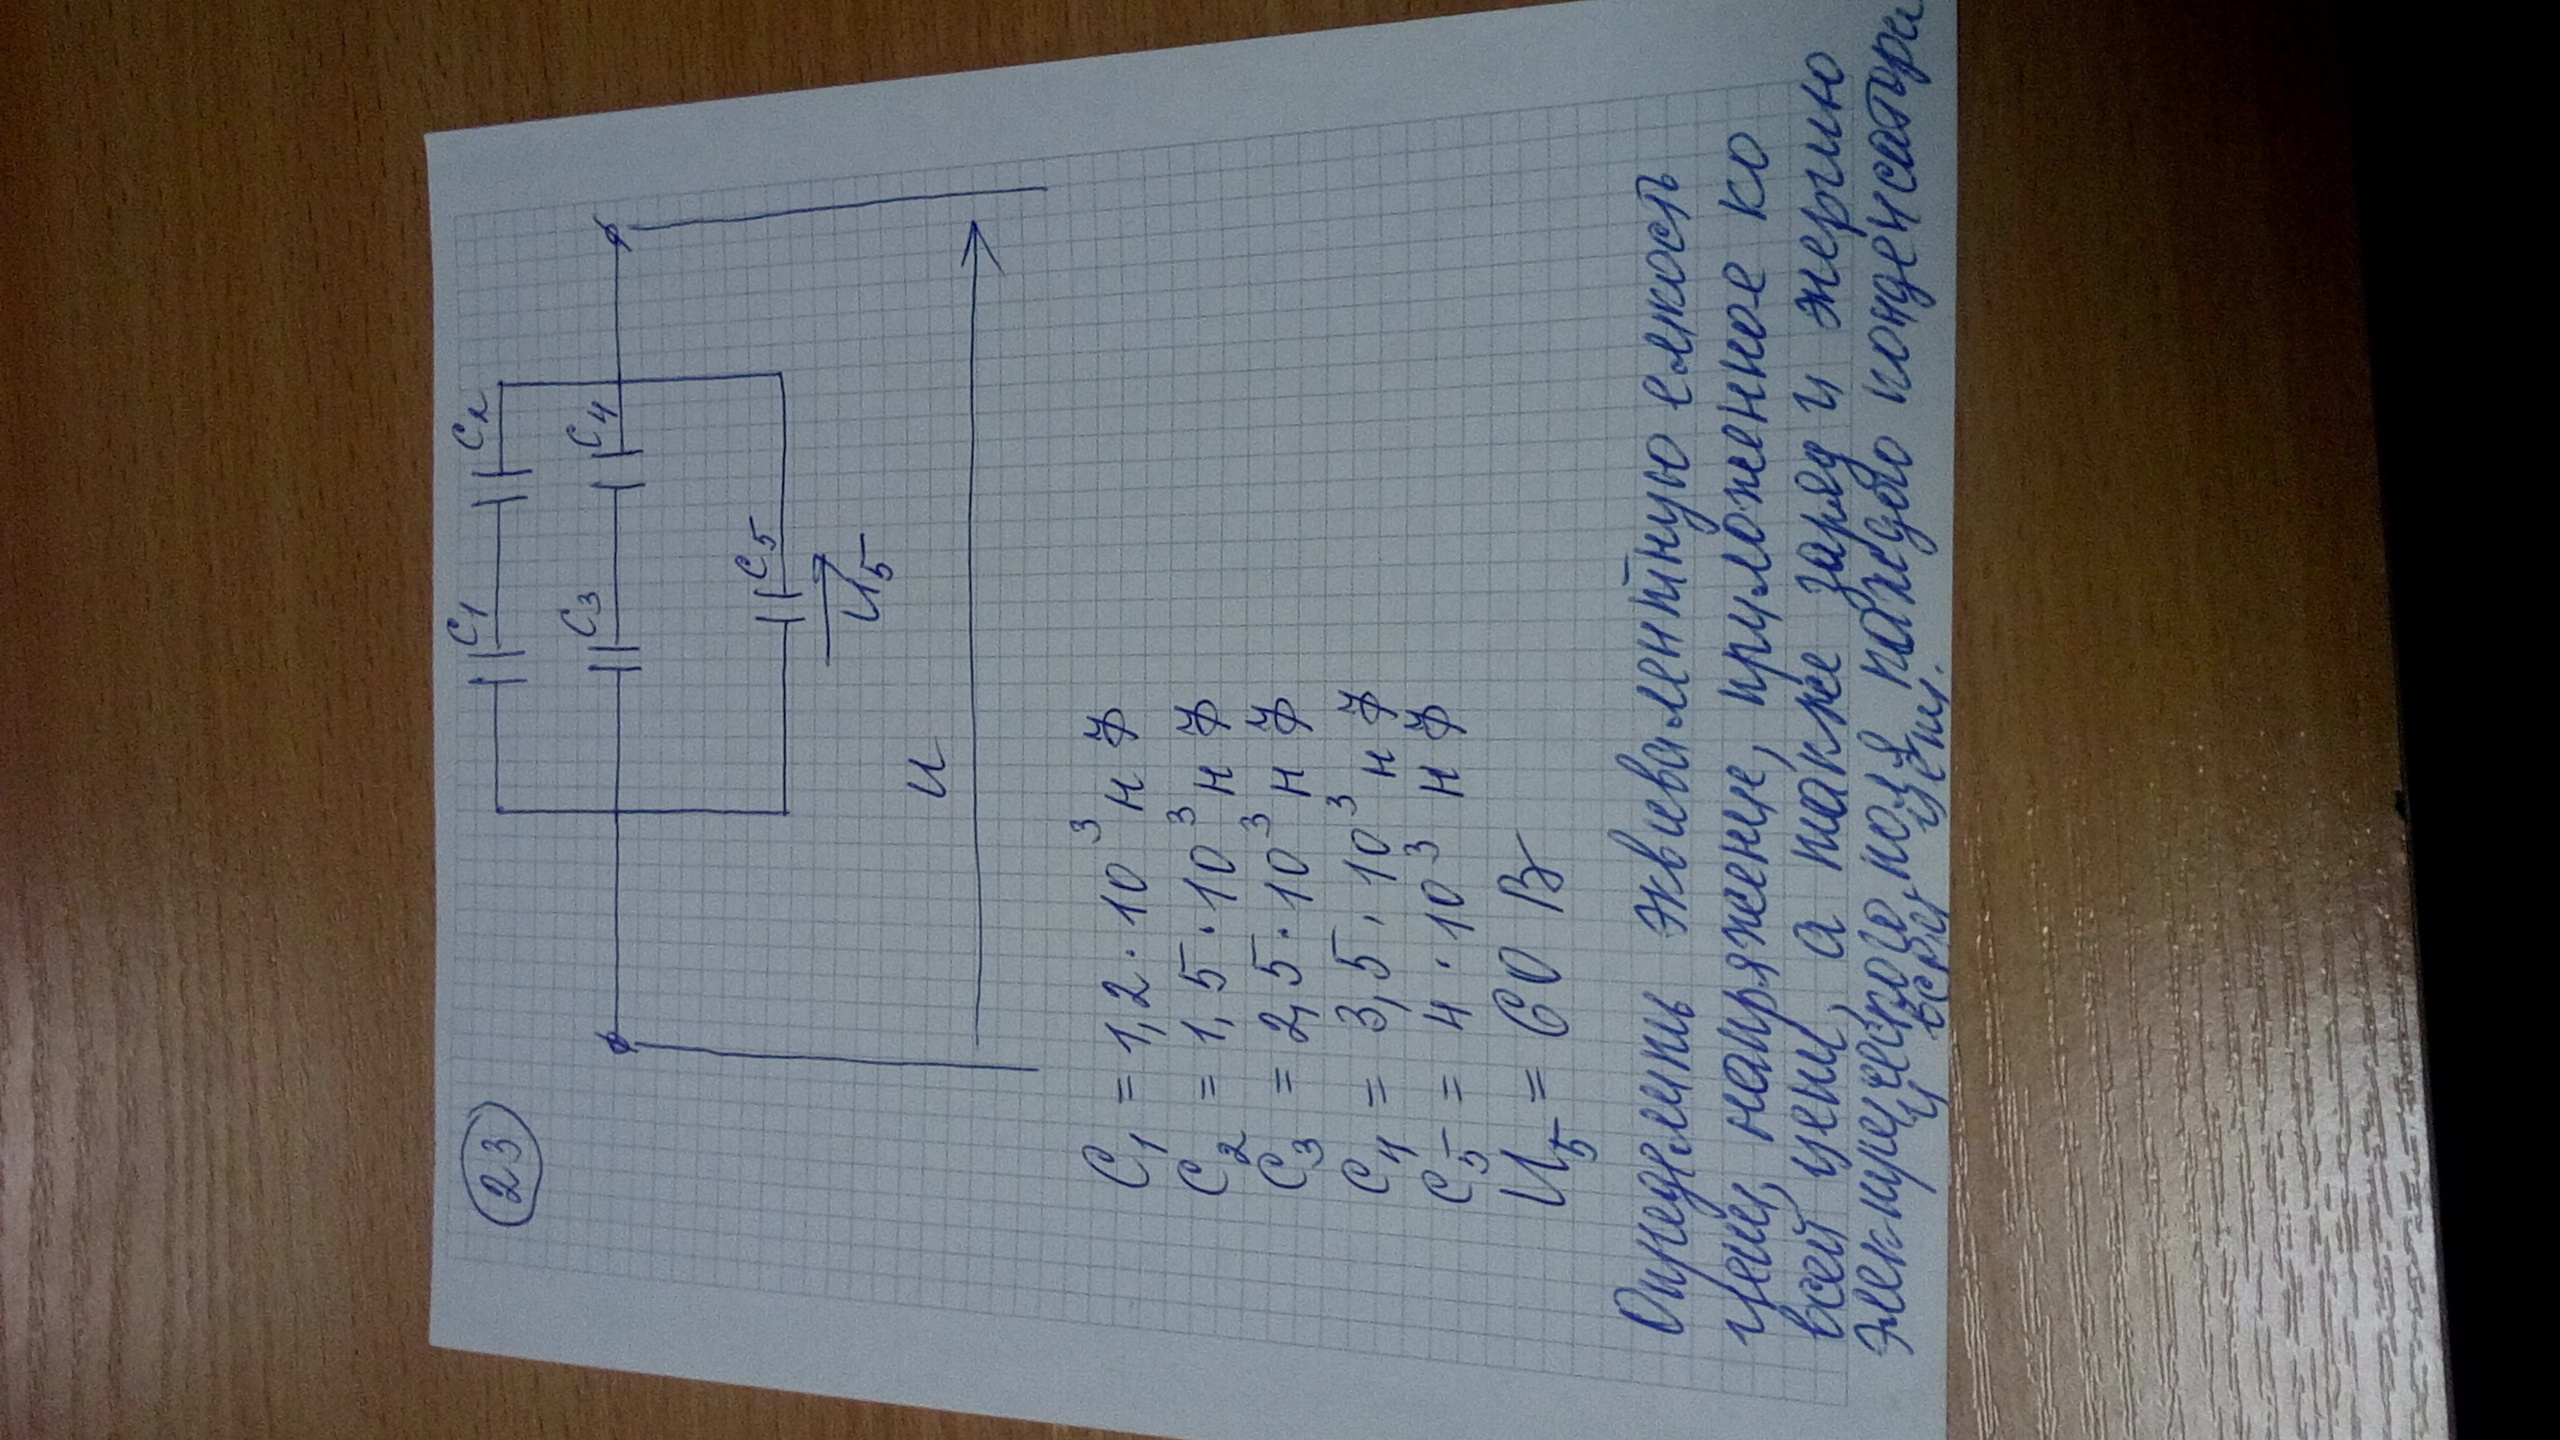 23
C1 C2
C3 C4
C5
U5
U
C1 = 1,2·10³ нФ
C2 = 1,5·10³ нФ
C3 = 2,5·10³ нФ
C4 = 3,5·10³ нФ
C5 = 4·10³ нФ
U5 = 60 В
Определить эквивалентную емкость
цепи, напряжение, приложенное ко
всей цепи, а также заряд и энергию
электрического поля каждого конденсатора
и всей цепи.